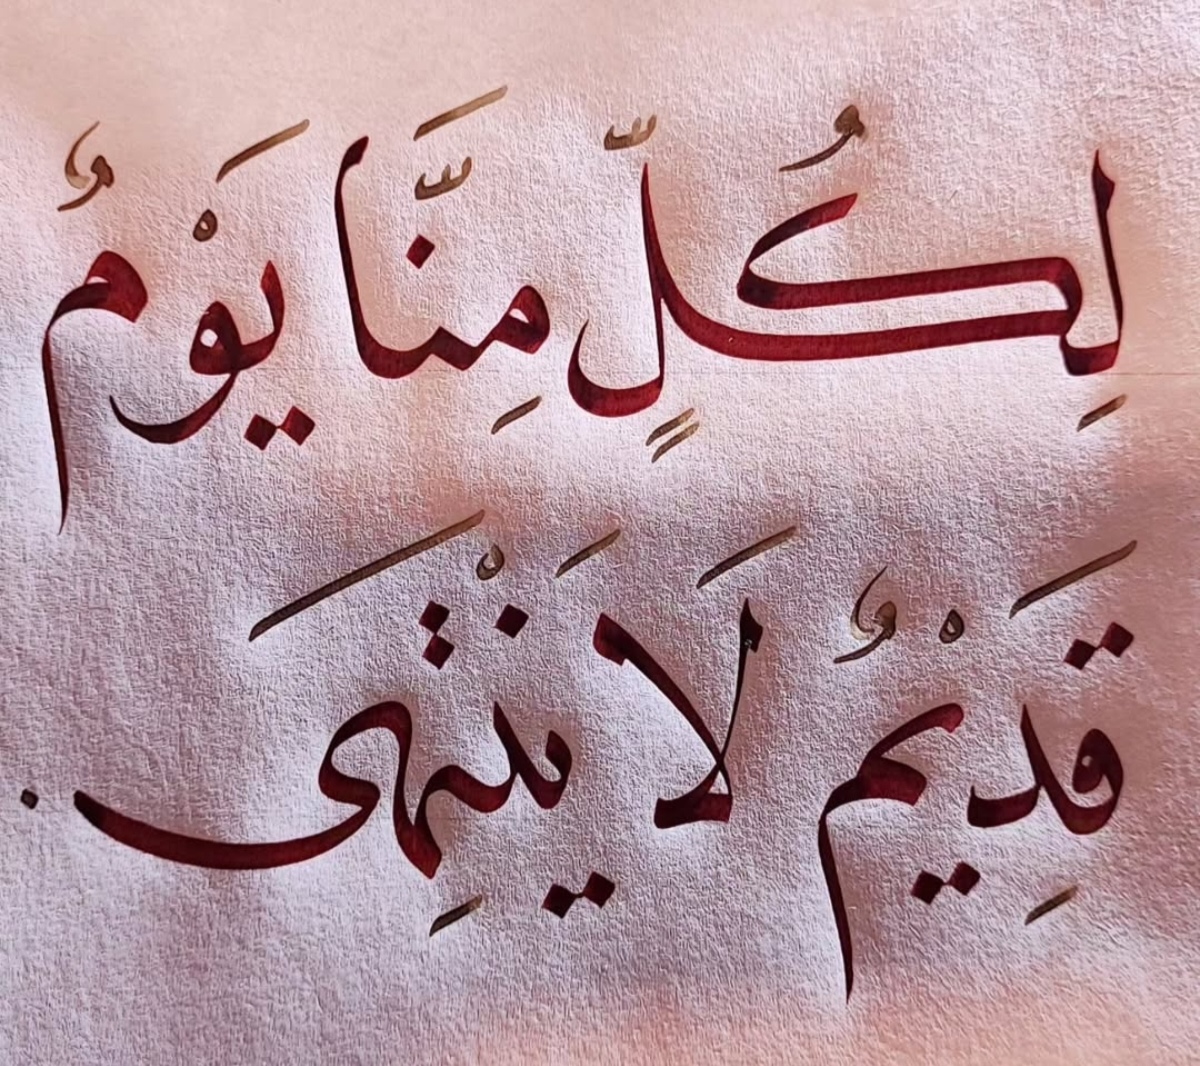 لِكُلٍّ مِنَّا يَوْمٌ
قَدِيْمٌ لَا يَنْتَهِى.